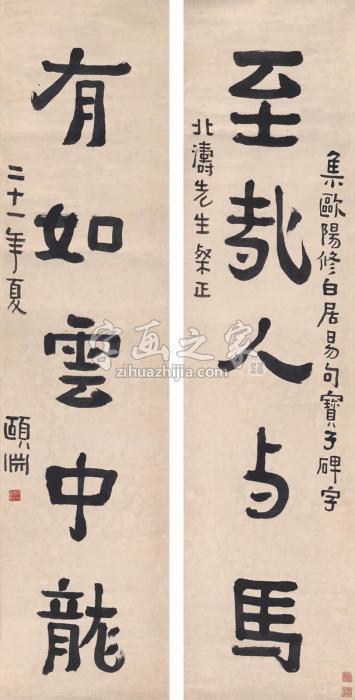 集歐陽修白居易句寶子碑字
至哉人与馬
北濤先生粲正
有如雲中龍
二十一年夏
頤淵
字画之家
zihuazhijia.com